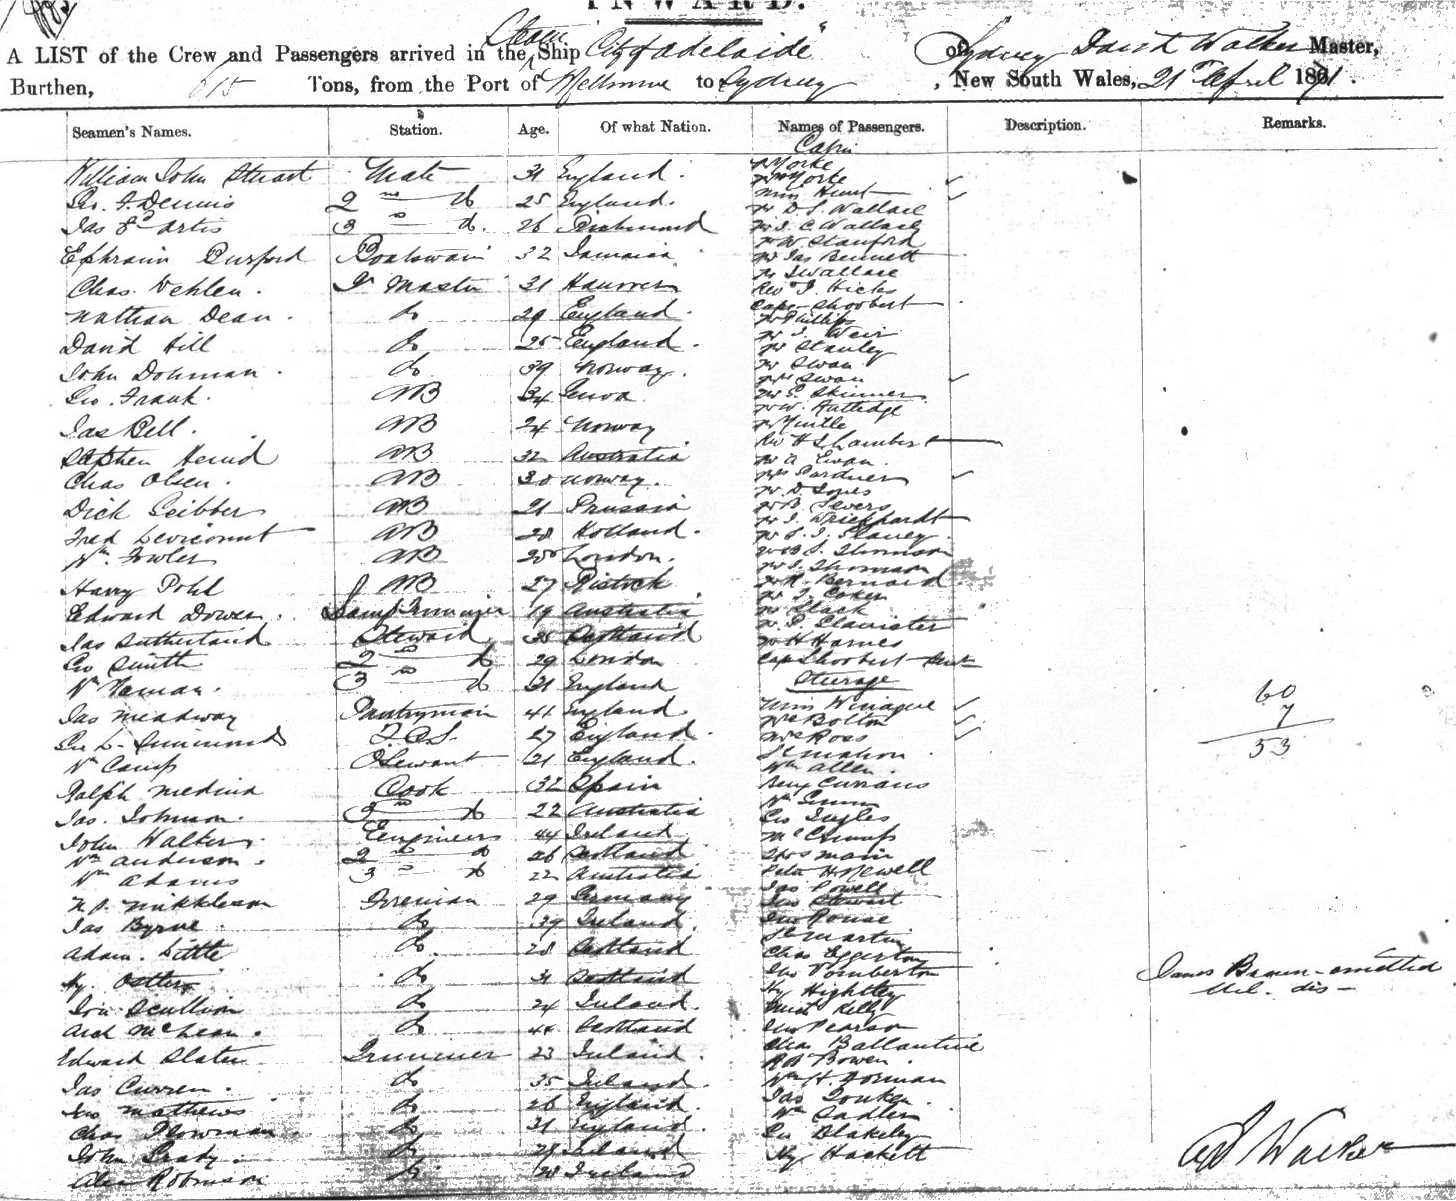 INWARD.
A LIST of the Crew and Passengers arrived in the Steam Ship "City of Adelaide" of Sydney David Walker Master,
Burthen, 615 Tons, from the Port of Melbourne to Sydney, New South Wales, 21st April 1871.
Seamen's Names. Station. Age. Of what Nation. Names of Passengers. Description. Remarks.
Cabin
William John Stuart Mate 31 England. Mr Yorke
Mrs Yorke
Geo. F Dennis 2nd do 25 England. Miss Hunt
Mr D. S. Wallace
Jas Artis 3 do. 26 Richmond Mr J. C Wallace
Mr W. Stanford
Ephraim Burford Boatswain 32 Jamaica Mr Jas Bennett
Mr S Wallace
Chas. Vehlen. Qr Master 31 Hanover Revd J Hicks
Capt Shoobert
Nathan Dean. do 29 England. Mr Phillips
Mr J. Weir
David Hill do 25 England. Mr Stanley
Mr Swan
John Dohman. do 39 Norway. Mrs Swan
Geo. Frank. AB 34 Genoa Mr E Skinner
Mr W. Rutledge
Jas Bell. AB 24 Norway
Rev H S Lambert
Stephen AB 32 Australia Mr A Ewan.
Chas Olsen. AB 30 Norway. Mrs Gardner
Mr D Jones
Dick Geibber AB 21 Prussia Mr B Severs
Fred Leviconnt AB 28 Holland.
Wm Fowler AB 25 London. Mr S. Thomson
Mr J. Thomson
Harry Pohl AB 27 Rostock Mr R. Bernard
Mr J. Coker
Edward Dower. Lamp Trimmer 19 Australia Mr Slack
Jas Sutherland Steward 35 Scotland Mr H Harnes
Geo Smith 2 do 29 London Capt Shoobert
Wm Naman. 3 do 21 England Steerage
Jas Meadway Pantryman 41 England Miss Winague
Mrs Bolton
Geo L. Simmonds F.C.S. 27 England. Mrs Ross
Wm Camp O Servant 21 England.
Wm Allen.
Ralph Medina Cook 32 Spain Benj Currans
Jas. Johnson. 2nd do 22 Australia Wm Gunn
Geo Ingles
John Walker. Engineers 44 Ireland McCrump
Wm Anderson. 2 do 26 Scotland Thos Main
Wm Adams 3 do 22 Australia Peter H Newell
Jas Powell
N. P. Nikkleson Fireman 29 Germany Jno Stewart
Jas Byrne. do 39 Ireland. Jno Rouse
Martin
Adam. Little do. 28 Scotland Chas Eggerton
Hy. Ostlers do 31 Scotland Jno Pomberton
Hy Hightley
Jno Scullion do 24 Ireland. Kelly
Arch McLean. do 44 Scotland Jno Pearson
Edward Slater Trimmer 23 Ireland. Chas Ballantine
Bowen.
Jas Curren. do 35 Ireland. Wm H. Gorman
Jno Mathews do 26 England. Jas Tonken.
Wm Sadler
Chas Plowman. do 31 England. Geo Blakeley
John Grady. do 28 Ireland Hy Hackett
Alex Robinson do 28 Ireland
60
7
53
James Brown - omitted
Mel. dis -
D Walker